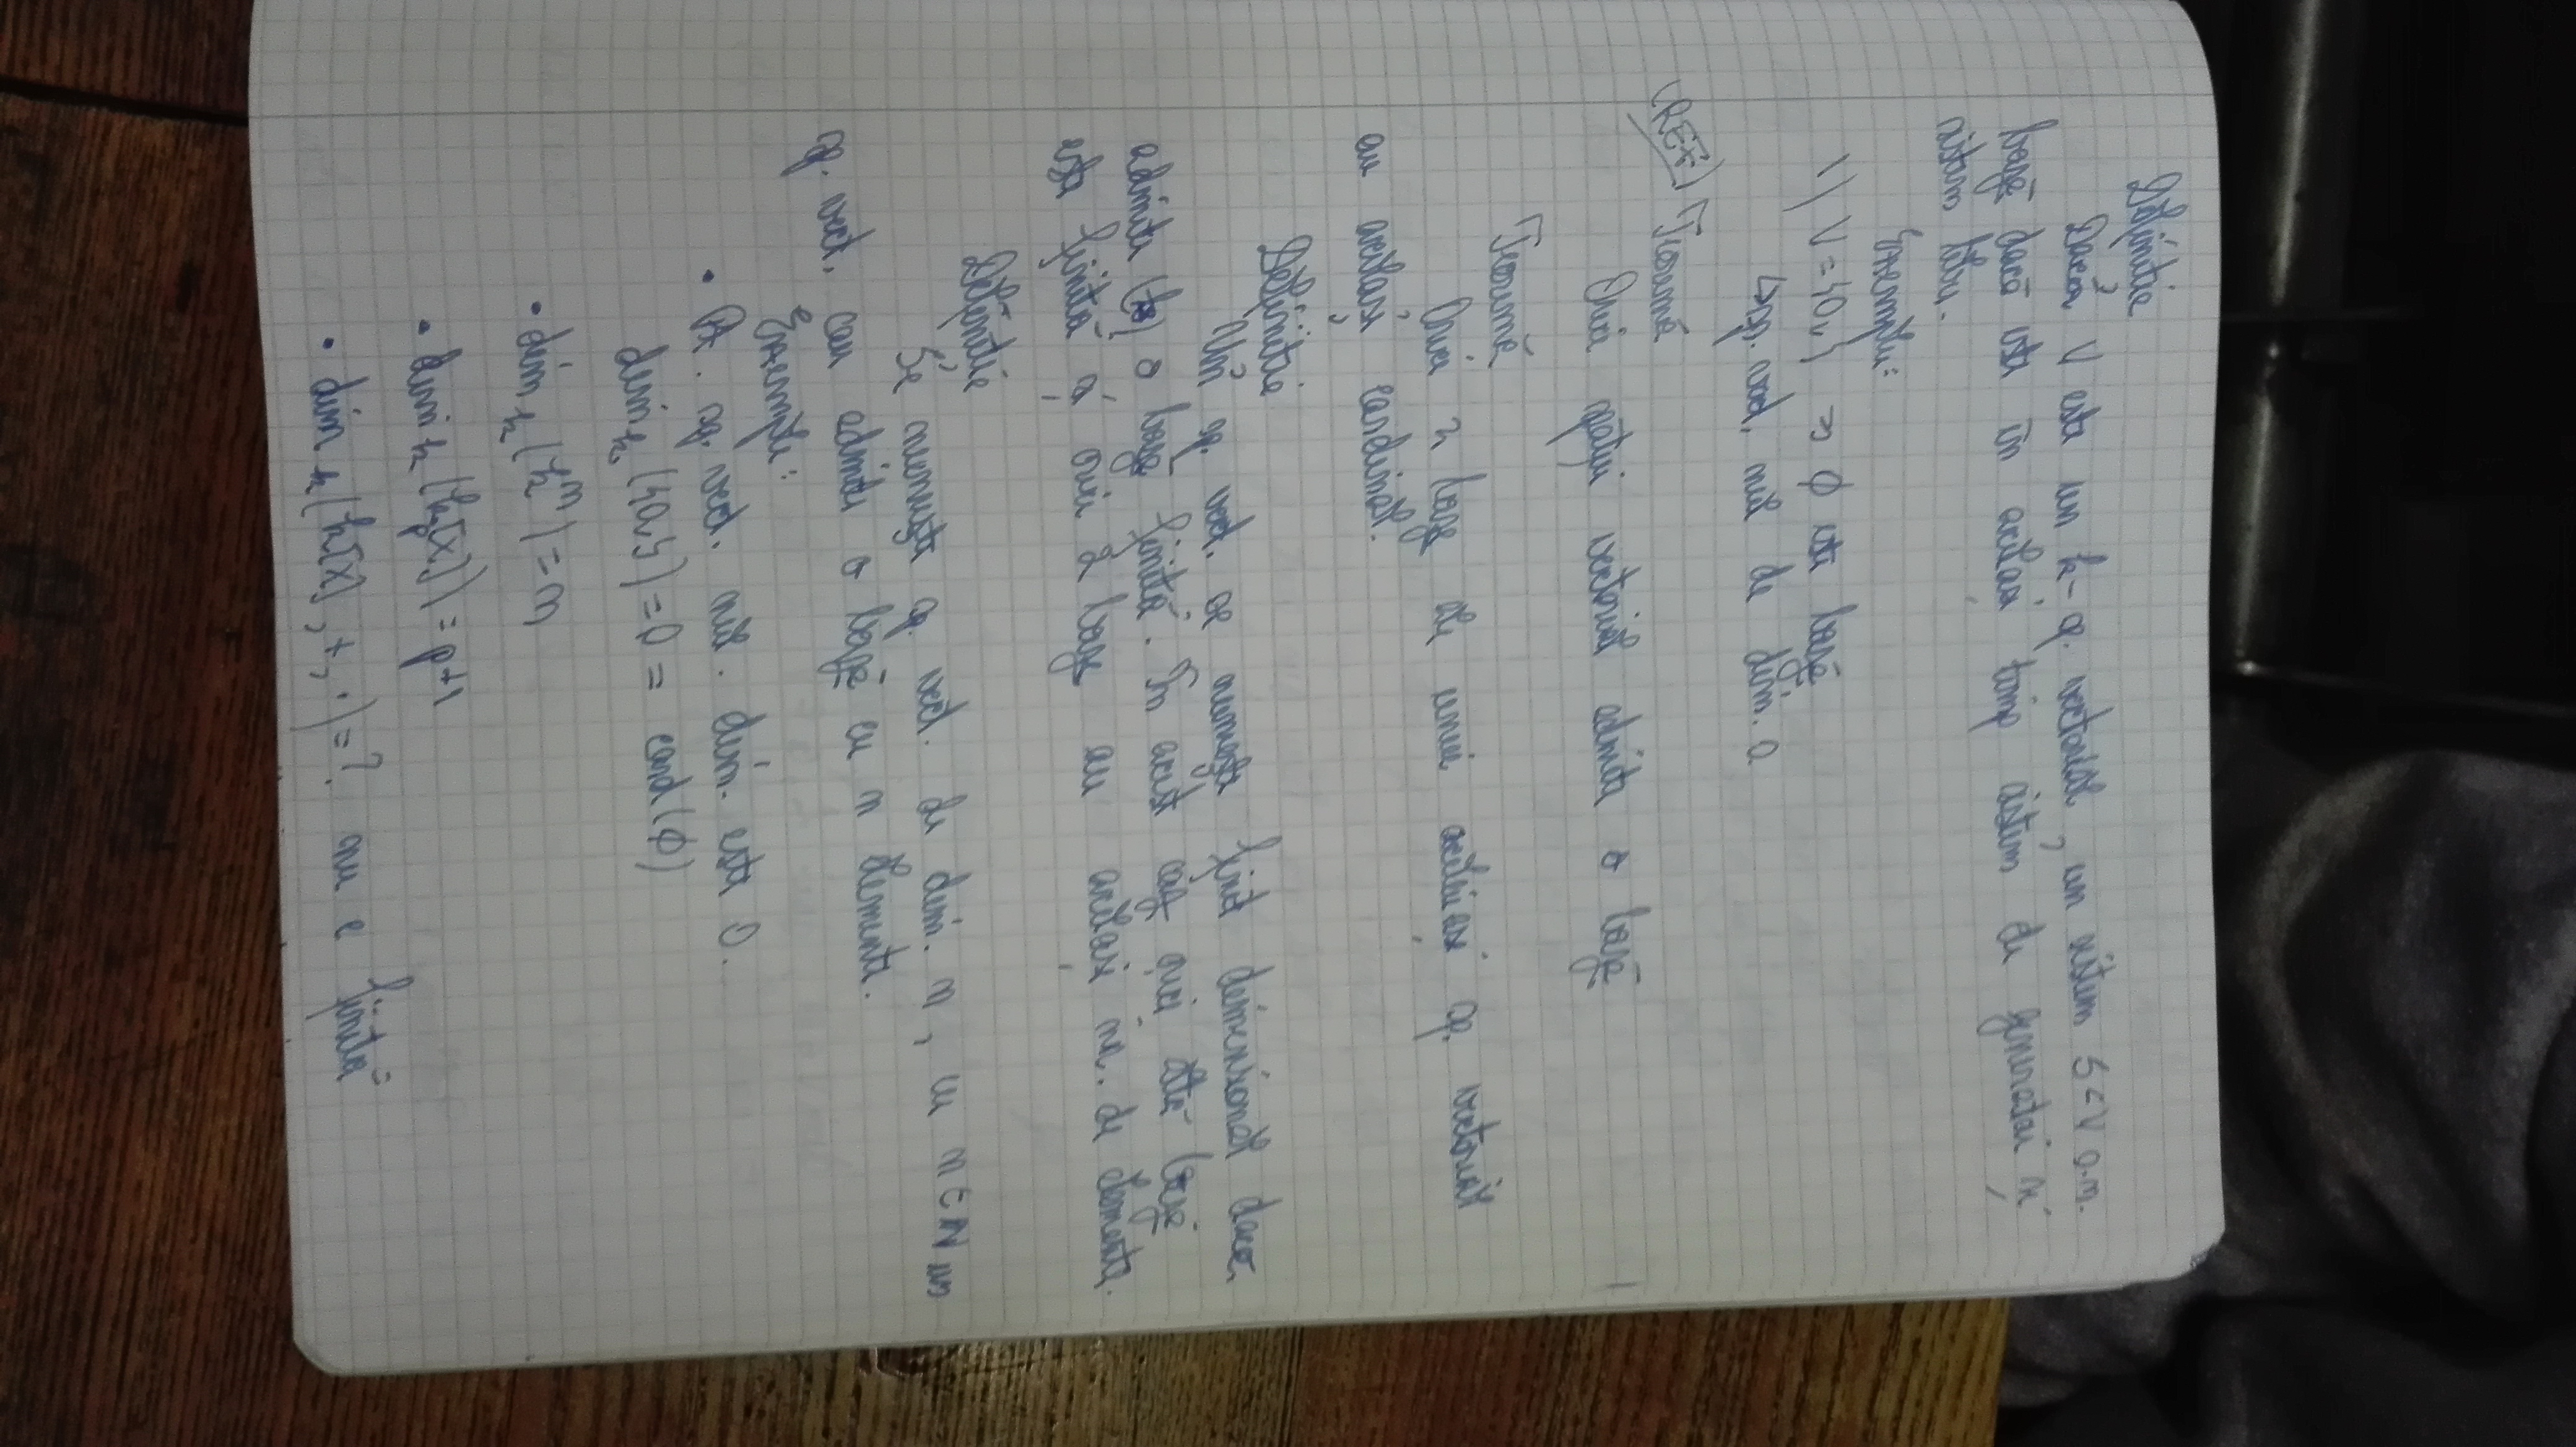 Definitie
Dacă V este un k-sp. vectorial, un sistem S⊂V s.n.
bază dacă este în același timp sistem de generatori și
sistem liber.
Exemplu:
1) V={0v} => ∅ este bază
↳sp. vect. nul de dim. 0
(REF) Teoremă
Orice spațiu vectorial admite o bază
Teoremă
Orice 2 baze ale unui aceluiași sp. vectorial
au același cardinal.
Definitie
Un sp. vect. se numește finit dimensional daca
admite o bază finită. În acest caz orice altă bază
este finită și orice 2 baze au același nr. de elemente.
Definitie
Se numește sp. vect. de dim. n, cu n∈N un
sp. vect. care admite o bază cu n elemente.
Exemplu:
• Pt. sp. vect. nul. dim. este 0.
dim k ({0v}) = 0 = card(∅)
• dim k (kⁿ) = n
• dim k (kp[X]) = p+1
• dim k (k[X], +, ·) = ? nu e finită